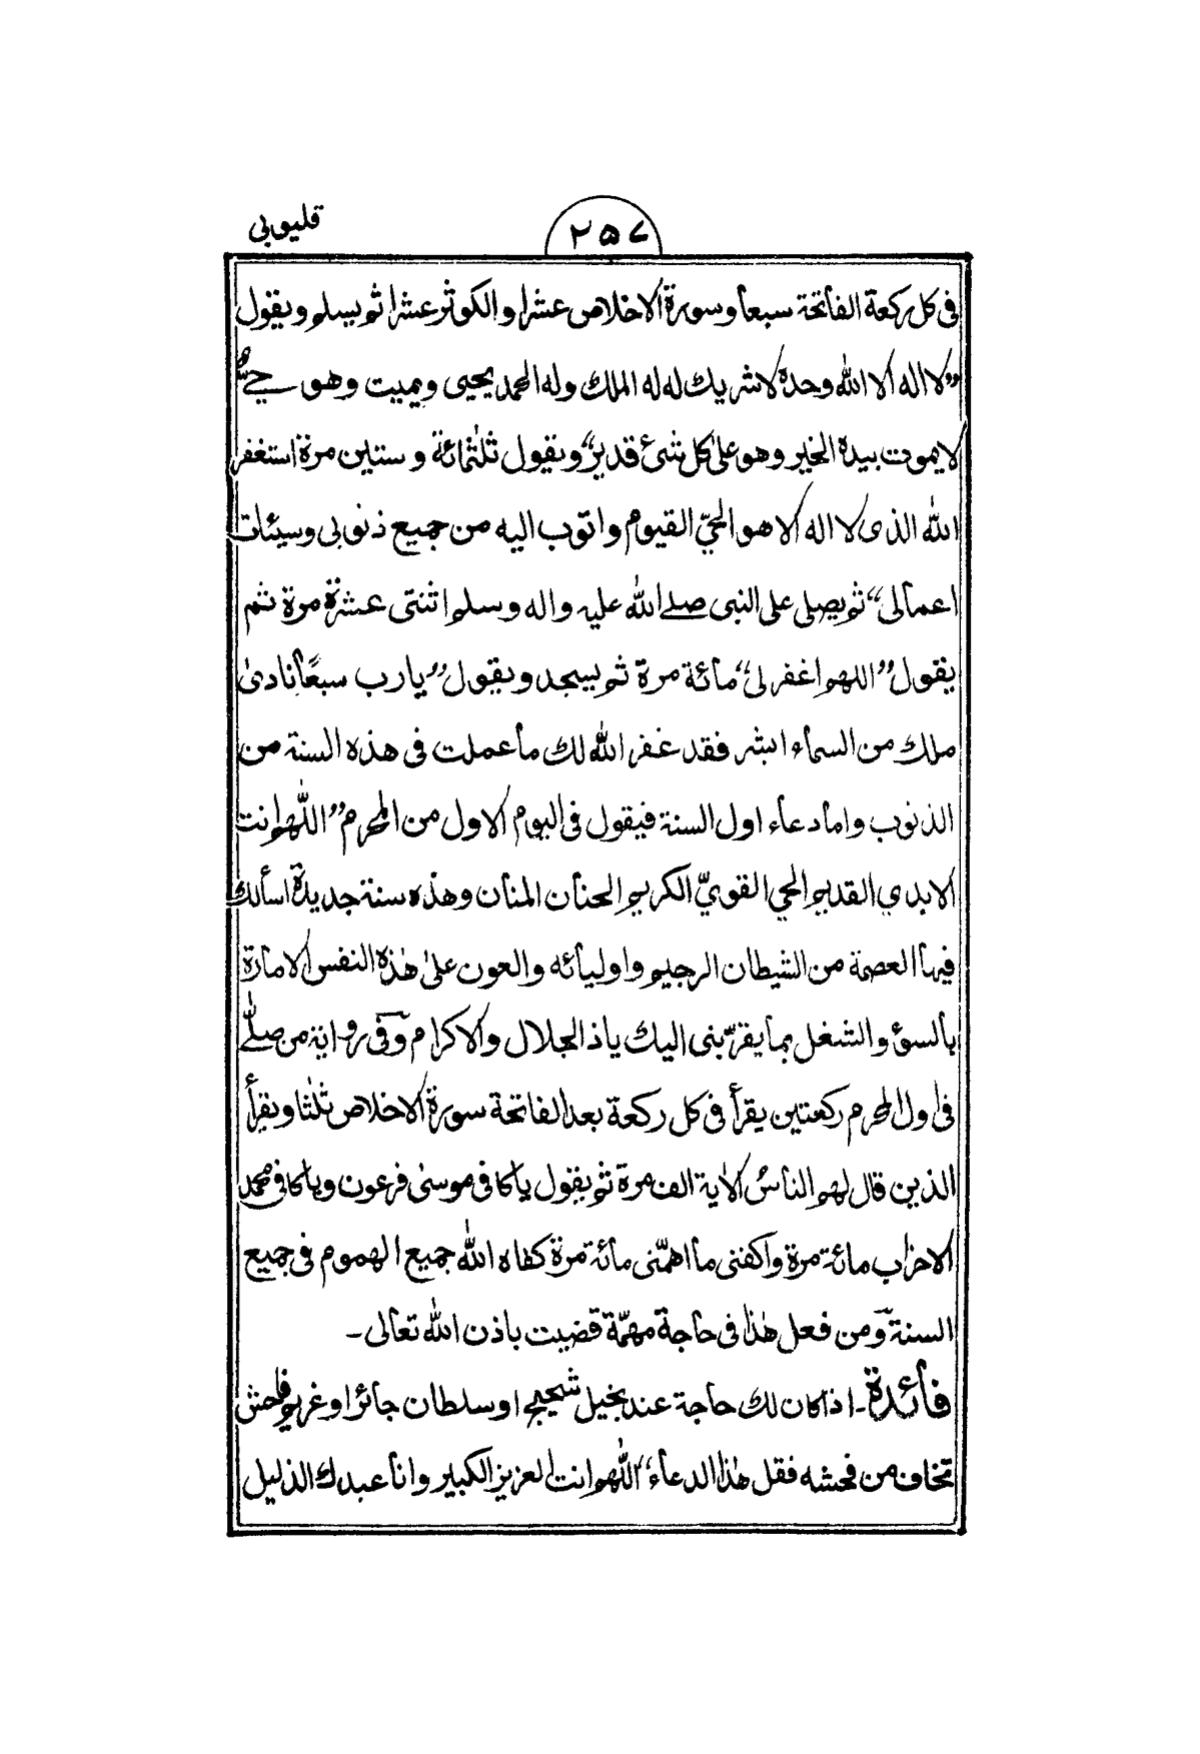 قليوبي
۲۵۷
فى كل ركعة الفاتحة سبعا وسورة الاخلاص عشرا والكوثر عشرا ثم يسلم ويقول
”لا اله الا الله وحدة لا شريك له له الملك وله الحمد يحيى ويميت وهو حيٌّ
لا يموت بيدة الخير وهو على كل شئ قدير“ ويقول ثلثمائة وستين مرة استغفر
الله الذى لا اله الا هو الحيّ القيوم واتوب اليه من جميع ذنوبى وسيئات
اعمالى“ ثم يصلى على النبى صلے الله عليه واله وسلم اثنتى عشرة مرة ثم
يقول ”اللهم اغفرلى“ مائة مرة ثم يسجد ويقول ”يارب سبعًا نادىٰ
ملك من السماء ابشر فقد غفر الله لك ما عملت فى هذه السنة من
الذنوب واما دعاء اول السنة فيقول فى اليوم الاول من المحرم ”اللّٰهم انت
الابدي القديم الحي القويّ الكريم الحنان المنان وهذه سنة جديدة اسألك
فيها العصمة من الشيطان الرجيم واوليائه والعون علىٰ هٰذه النفس الامارة
بالسوٴ والشغل بما يقرّبنى اليك ياذا الجلال والاكرام وفى رواية من صلّٰے
فى اول المحرم ركعتين يقرأ فى كل ركعة بعد الفاتحة سورة الاخلاص ثلٰثا ويقرأ
الذين قال لهم الناسُ الاٰية الف مرة ثم يقول ياكافى موسىٰ فرعون وياكافى محمد
الاحزاب مائة مرة واكفنى ما اهمّنى مائة مرة كفاه الله جميع الهموم فى جميع
السنة ومن فعل هٰذا فى حاجة مهمّة قضيت باذن الله تعالى۔
فائدة۔ اذا كان لك حاجة عند بخيل شحيح او سلطان جائر او غريم فاحش
تخاف من فحشه فقل هٰذا الدعاء، ”اللّٰهم انت العزيز الكبير وانا عبدك الذليل